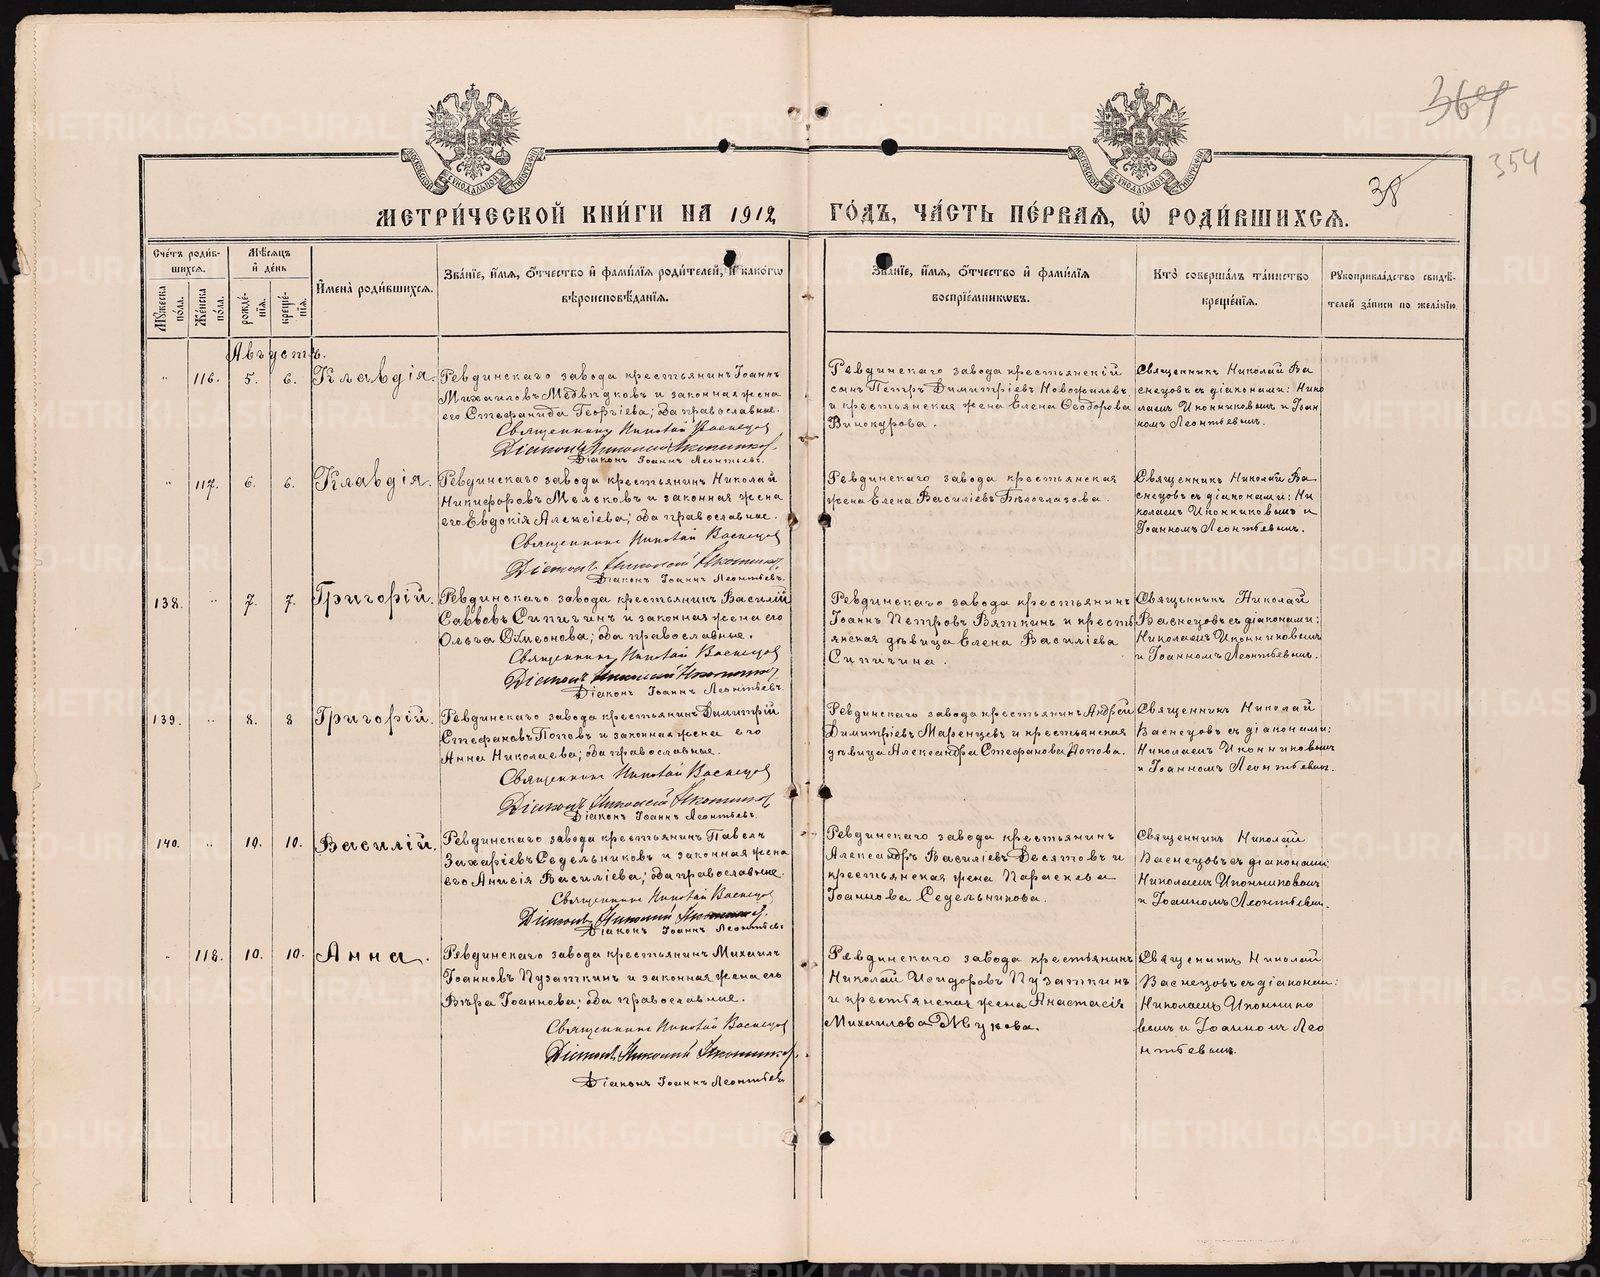 364
354
38
МЕТРИ́ЧЕСКОЙ КНИ́ГИ НА 1912 ГО́ДЪ, ЧА́СТЬ ПЕ́РВАЯ, Ѡ҆ РОДИ́ВШИХСЯ.
Сче́тъ роди́в-
шихся.
Му́жеска по́ла.
Же́нска по́ла.
Мѣ́сяцъ и҆ де́нь
рожде́-
нія.
креще́-
нія.
И҆мена̀ роди́вшихся.
Зва́ніе, и҆́мя, ѻ҆́тчество и҆ фами́лія роди́телей, и҆ како́гѡ
вѣроисповѣ́данія.
Зва́ніе, и҆́мя, ѻ҆́тчество и҆ фами́лія
воспріе́мникѡвъ.
Кто̀ соверша́лъ та́инство
креще́нія.
Рукоприкла́дство свидѣ́-
телей за́писи по жела́нію.
Августъ.
" 116. 5. 6. Клавдія.
Ревдинскаго завода крестьянинъ Іоаннъ
Михаиловъ Медвѣдковъ и законная жена
его Стефанида Георгіева; оба православные.
Священникъ Николай Васнецовъ
Діаконъ Николай Иконниковъ
Діаконъ Іоаннъ Леонтьевъ.
Ревдинскаго завода крестьянскій
сынъ Петръ Димитріевъ Новожиловъ
и крестьянская жена Елена Ѳеодорова
Винокурова.
Священникъ Николай Ва
снецовъ съ діаконами: Нико
лаемъ Иконниковымъ и Іоан
номъ Леонтьевымъ.
" 117. 6. 6. Клавдія.
Ревдинскаго завода крестьянинъ Николай
Никифоровъ Мельковъ и законная жена
его Евдокія Алексіева; оба православные.
Священникъ Николай Васнецовъ
Діаконъ Николай Иконниковъ
Діаконъ Іоаннъ Леонтьевъ.
Ревдинскаго завода крестьянская
жена Елена Василіевъ Бѣлоглазова.
Священникъ Николай Ва
снецовъ съ діаконами: Ни
колаемъ Иконниковымъ и
Іоанномъ Леонтьевымъ.
138. " 7. 7. Григорій.
Ревдинскаго завода крестьянинъ Василій
Саввовъ Сипигинъ и законная жена его
Ольга Симеонова; оба православные.
Священникъ Николай Васнецовъ
Діаконъ Николай Иконниковъ
Діаконъ Іоаннъ Леонтьевъ.
Ревдинскаго завода крестьянинъ
Іоаннъ Петровъ Вяткинъ и кресть
янская дѣвица Елена Василіева
Сипигина.
Священникъ Николай
Васнецовъ съ діаконами:
Николаемъ Иконниковымъ
и Іоанномъ Леонтьевымъ.
139. " 8. 8 Григорій.
Ревдинскаго завода крестьянинъ Димитрій
Стефановъ Поповъ и законная жена его
Анна Николаева; оба православные.
Священникъ Николай Васнецовъ
Діаконъ Николай Иконниковъ
Діаконъ Іоаннъ Леонтьевъ.
Ревдинскаго завода крестьянинъ Андрей
Димитріевъ Маренцевъ и крестьянская
дѣвица Александра Стефанова Попова.
Священникъ Николай
Васнецовъ съ діаконами:
Николаемъ Иконниковымъ
и Іоанномъ Леонтьевымъ.
140. " 10. 10. Василій.
Ревдинскаго завода крестьянинъ Павелъ
Захаріевъ Седельниковъ и законная жена
его Анисія Василіева; оба православные.
Священникъ Николай Васнецовъ
Діаконъ Николай Иконниковъ.
Діаконъ Іоаннъ Леонтьевъ
Ревдинскаго завода крестьянинъ
Александръ Василіевъ Десятовъ и
крестьянская жена Параскева
Іоаннова Седельникова.
Священникъ Николай
Васнецовъ съ діаконами:
Николаемъ Иконниковымъ
и Іоанномъ Леонтьевым.
" 118. 10. 10. Анна.
Ревдинскаго завода крестьянинъ Михаилъ
Іоанновъ Пузаткинъ и законная жена его
Вѣра Іоаннова; оба православные.
Священникъ Николай Васнецовъ
Діаконъ Николай Иконниковъ.
Діаконъ Іоаннъ Леонтьев
Ревдинскаго завода крестьянинъ
Николай Исидоровъ Пузаткинъ
и крестьянская жена Анастасія
Михаилова Жукова.
Священникъ Николай
Васнецовъ съ діаконами:
Николаемъ Иконнико
вымъ и Іоанномъ Лео
нтьевымъ.
METRIKI.GASO-URAL.RU